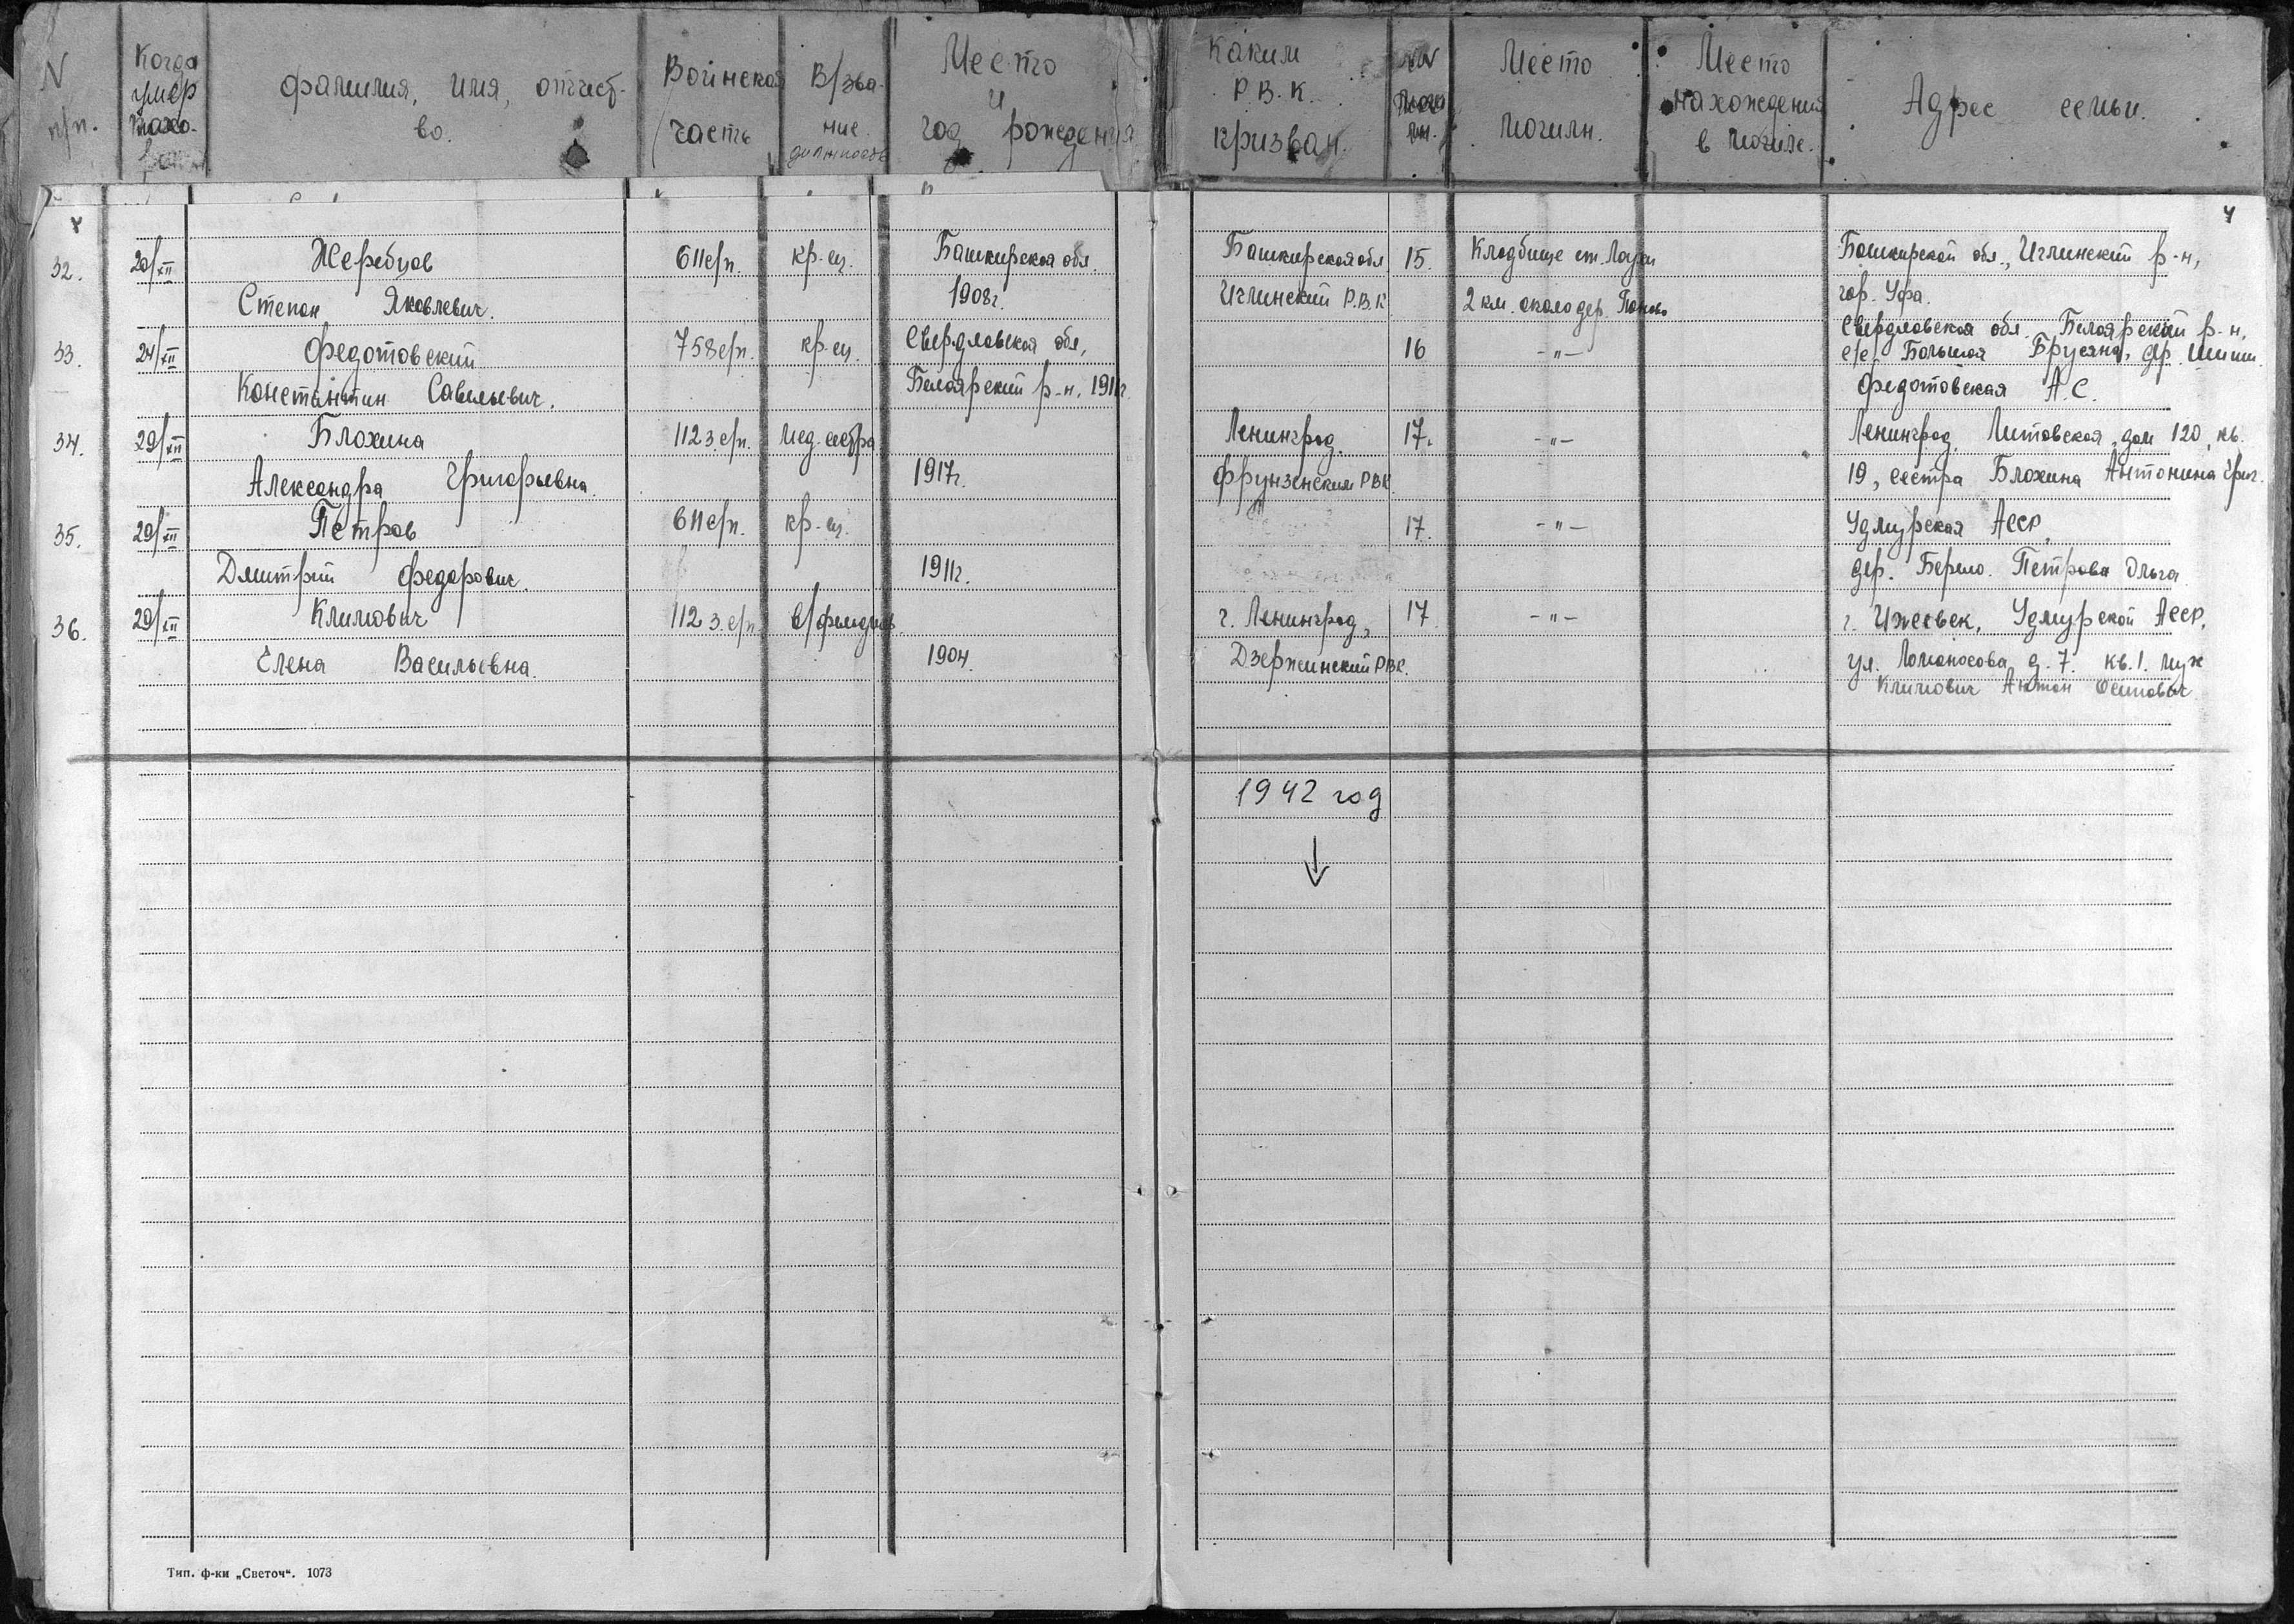 N п/п.
Когда умер похо-
Фамилия, имя, отчест-во.
Воинская часть
В/зва-ние должность
Место и год рождения
Каким Р.В.К. призван.
NN моги лн.
Место могилн.
Место нахождения в могиле.
Адрес семьи.
4 4
32. 20/XII Жеребцов 611 с/п. кр-ец. Башкирская обл. Башкирская обл 15. Кладбище ст. Башкирской обл., Иглинский р-н,
Степан Яковлевич. 1908г. Иглинский Р.В.К 2 км. около дер. гор. Уфа.
33. 24/XII Федотовский 758 с/п. кр-ец. Свердловская обл, 16 -"- Свердловская обл. Белоярский р-н,
с/с Большая Брусяна, дер.
Константин Савельевич. Белоярский р-н. 1911г. Федотовская А.С.
34. 29/XII Блохина 1123 с/п. мед-сестра Ленинград. 17. -"- Ленинград, Литовская, дом 120, кв.
Александра Григорьевна. 1917г. Фрунзенским РВК 19, сестра Блохина Антонина Григ.
35. 29/XII Петров 611 с/п. кр-ец. 17. -"- Удмурская АССР,
Дмитрий Федорович. 1911г. дер. Петрова Ольга
36. 29/XII Климович 1123 с/п. г. Ленинград, 17 -"- г. Ижевск, Удмурской АССР,
Елена Васильевна. 1904. Дзержинский РВК. ул. Ломоносова д. 7. кв. 1. муж
Климович Антон Осипович
1942 год
↓
Тип. ф-ки „Светоч“. 1073